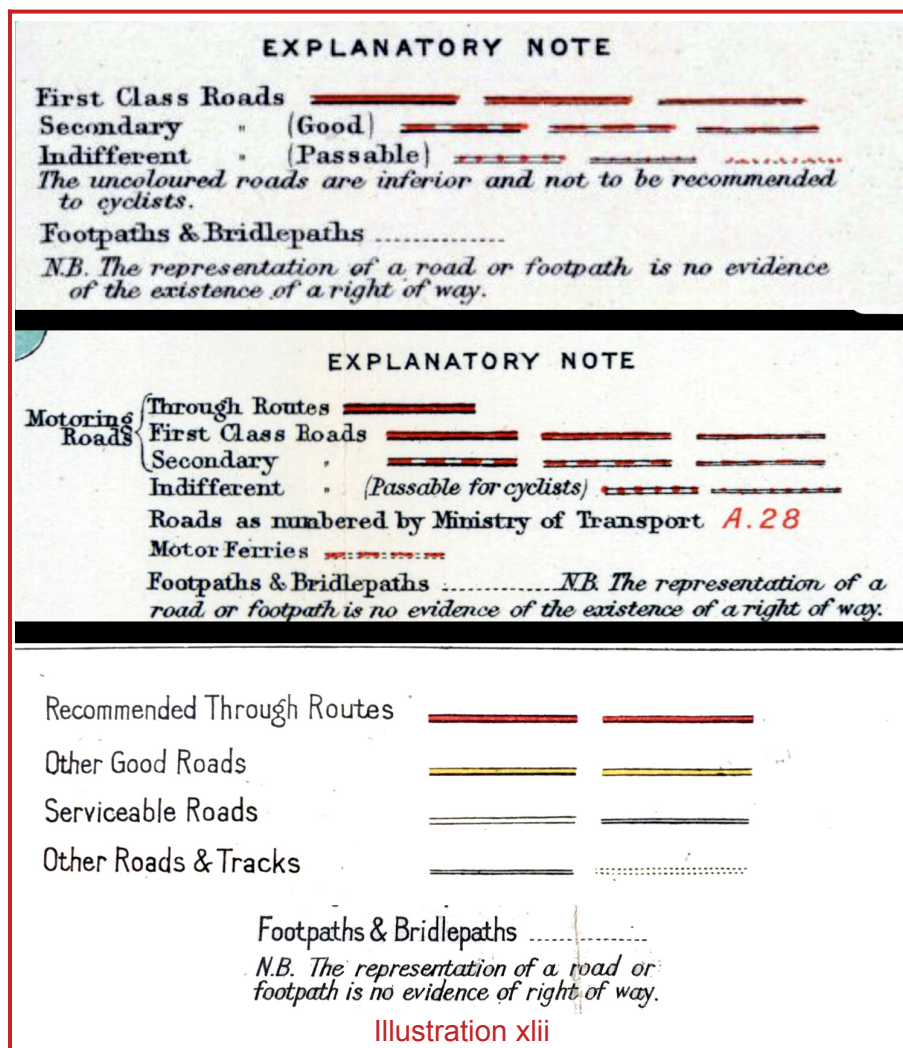 EXPLANATORY NOTE
First Class Roads
Secondary " (Good)
Indifferent " (Passable)
The uncoloured roads are inferior and not to be recommended
to cyclists.
Footpaths & Bridlepaths ..............
N.B. The representation of a road or footpath is no evidence
of the existence of a right of way.
EXPLANATORY NOTE
Motoring Roads
Through Routes
First Class Roads
Secondary "
Indifferent " (Passable for cyclists)
Roads as numbered by Ministry of Transport A.28
Motor Ferries
Footpaths & Bridlepaths .............. N.B. The representation of a
road or footpath is no evidence of the existence of a right of way.
Recommended Through Routes
Other Good Roads
Serviceable Roads
Other Roads & Tracks
Footpaths & Bridlepaths ..............
N.B. The representation of a road or
footpath is no evidence of right of way.
Illustration xlii